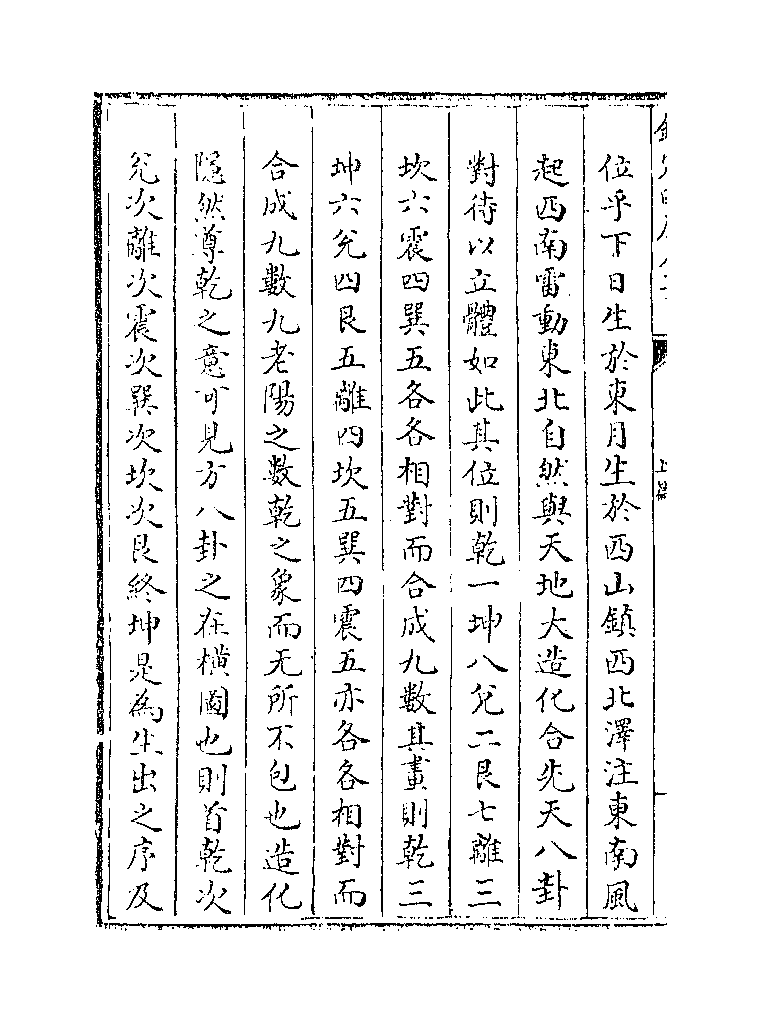 位乎下日生於東月生於西山鎮西北澤注東南風
起西南雷動東北自然與天地大造化合先天八卦
對待以立體如此其位則乾一坤八兌二艮七離三
坎六震四巽五各各相對而合成九數其畫則乾三
坤六兌四艮五離四坎五巽四震五亦各各相對而
合成九數九老陽之數乾之象而无所不包也造化
隱然尊乾之意可見方八卦之在橫圖也則首乾次
兌次離次震次巽次坎次艮終坤是為生出之序及